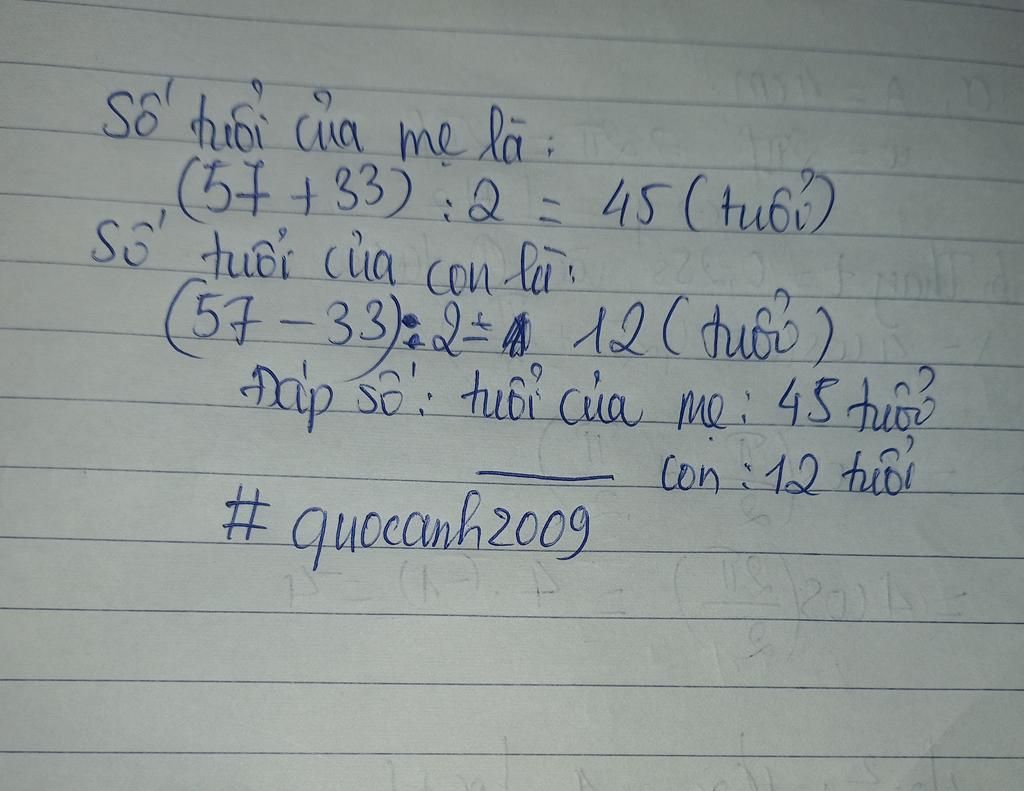 Số tuổi của mẹ là:
(57 + 33) : 2 = 45 (tuổi)
Số tuổi của con là:
(57 - 33) : 2 = 12 (tuổi)
Đáp số: tuổi của mẹ: 45 tuổi
con: 12 tuổi
# quocanh2009